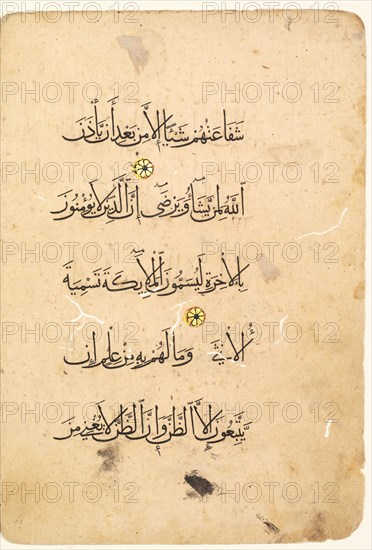 شَفَاعَتُهُمْ شَيْئًا إِلَّا مِنْ بَعْدِ أَنْ يَأْذَنَ
اللَّهُ لِمَنْ يَشَاءُ وَيَرْضَى إِنَّ الَّذِينَ لَا يُؤْمِنُونَ
بِالْآخِرَةِ لَيُسَمُّونَ الْمَلَائِكَةَ تَسْمِيَةَ
الْأُنْثَى وَمَا لَهُمْ بِهِ مِنْ عِلْمٍ إِنْ
يَتَّبِعُونَ إِلَّا الظَّنَّ وَإِنَّ الظَّنَّ لَا يُغْنِي مِنَ
PHOTO12